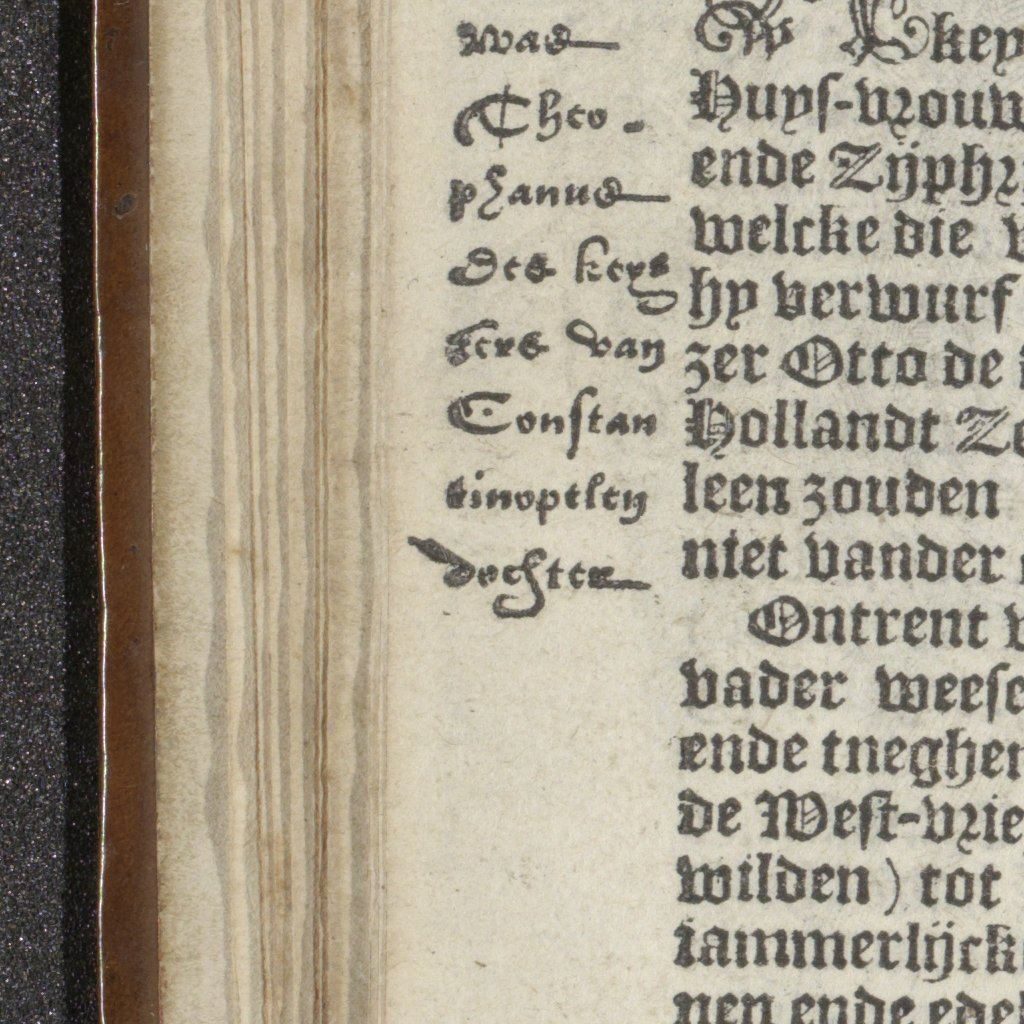 was
Theo
phanus
des keys
sers van
Constan
tinoplen
dochter
key
Huys-vrouw
ende Zijphr
welcke die v
hy verwurf
zer Otto de
Hollandt Ze
leen zouden
niet vander
Ontrent v
vader weese
ende tneghen
de West-vrie
wilden) tot
iammerlijck
nen ende edel